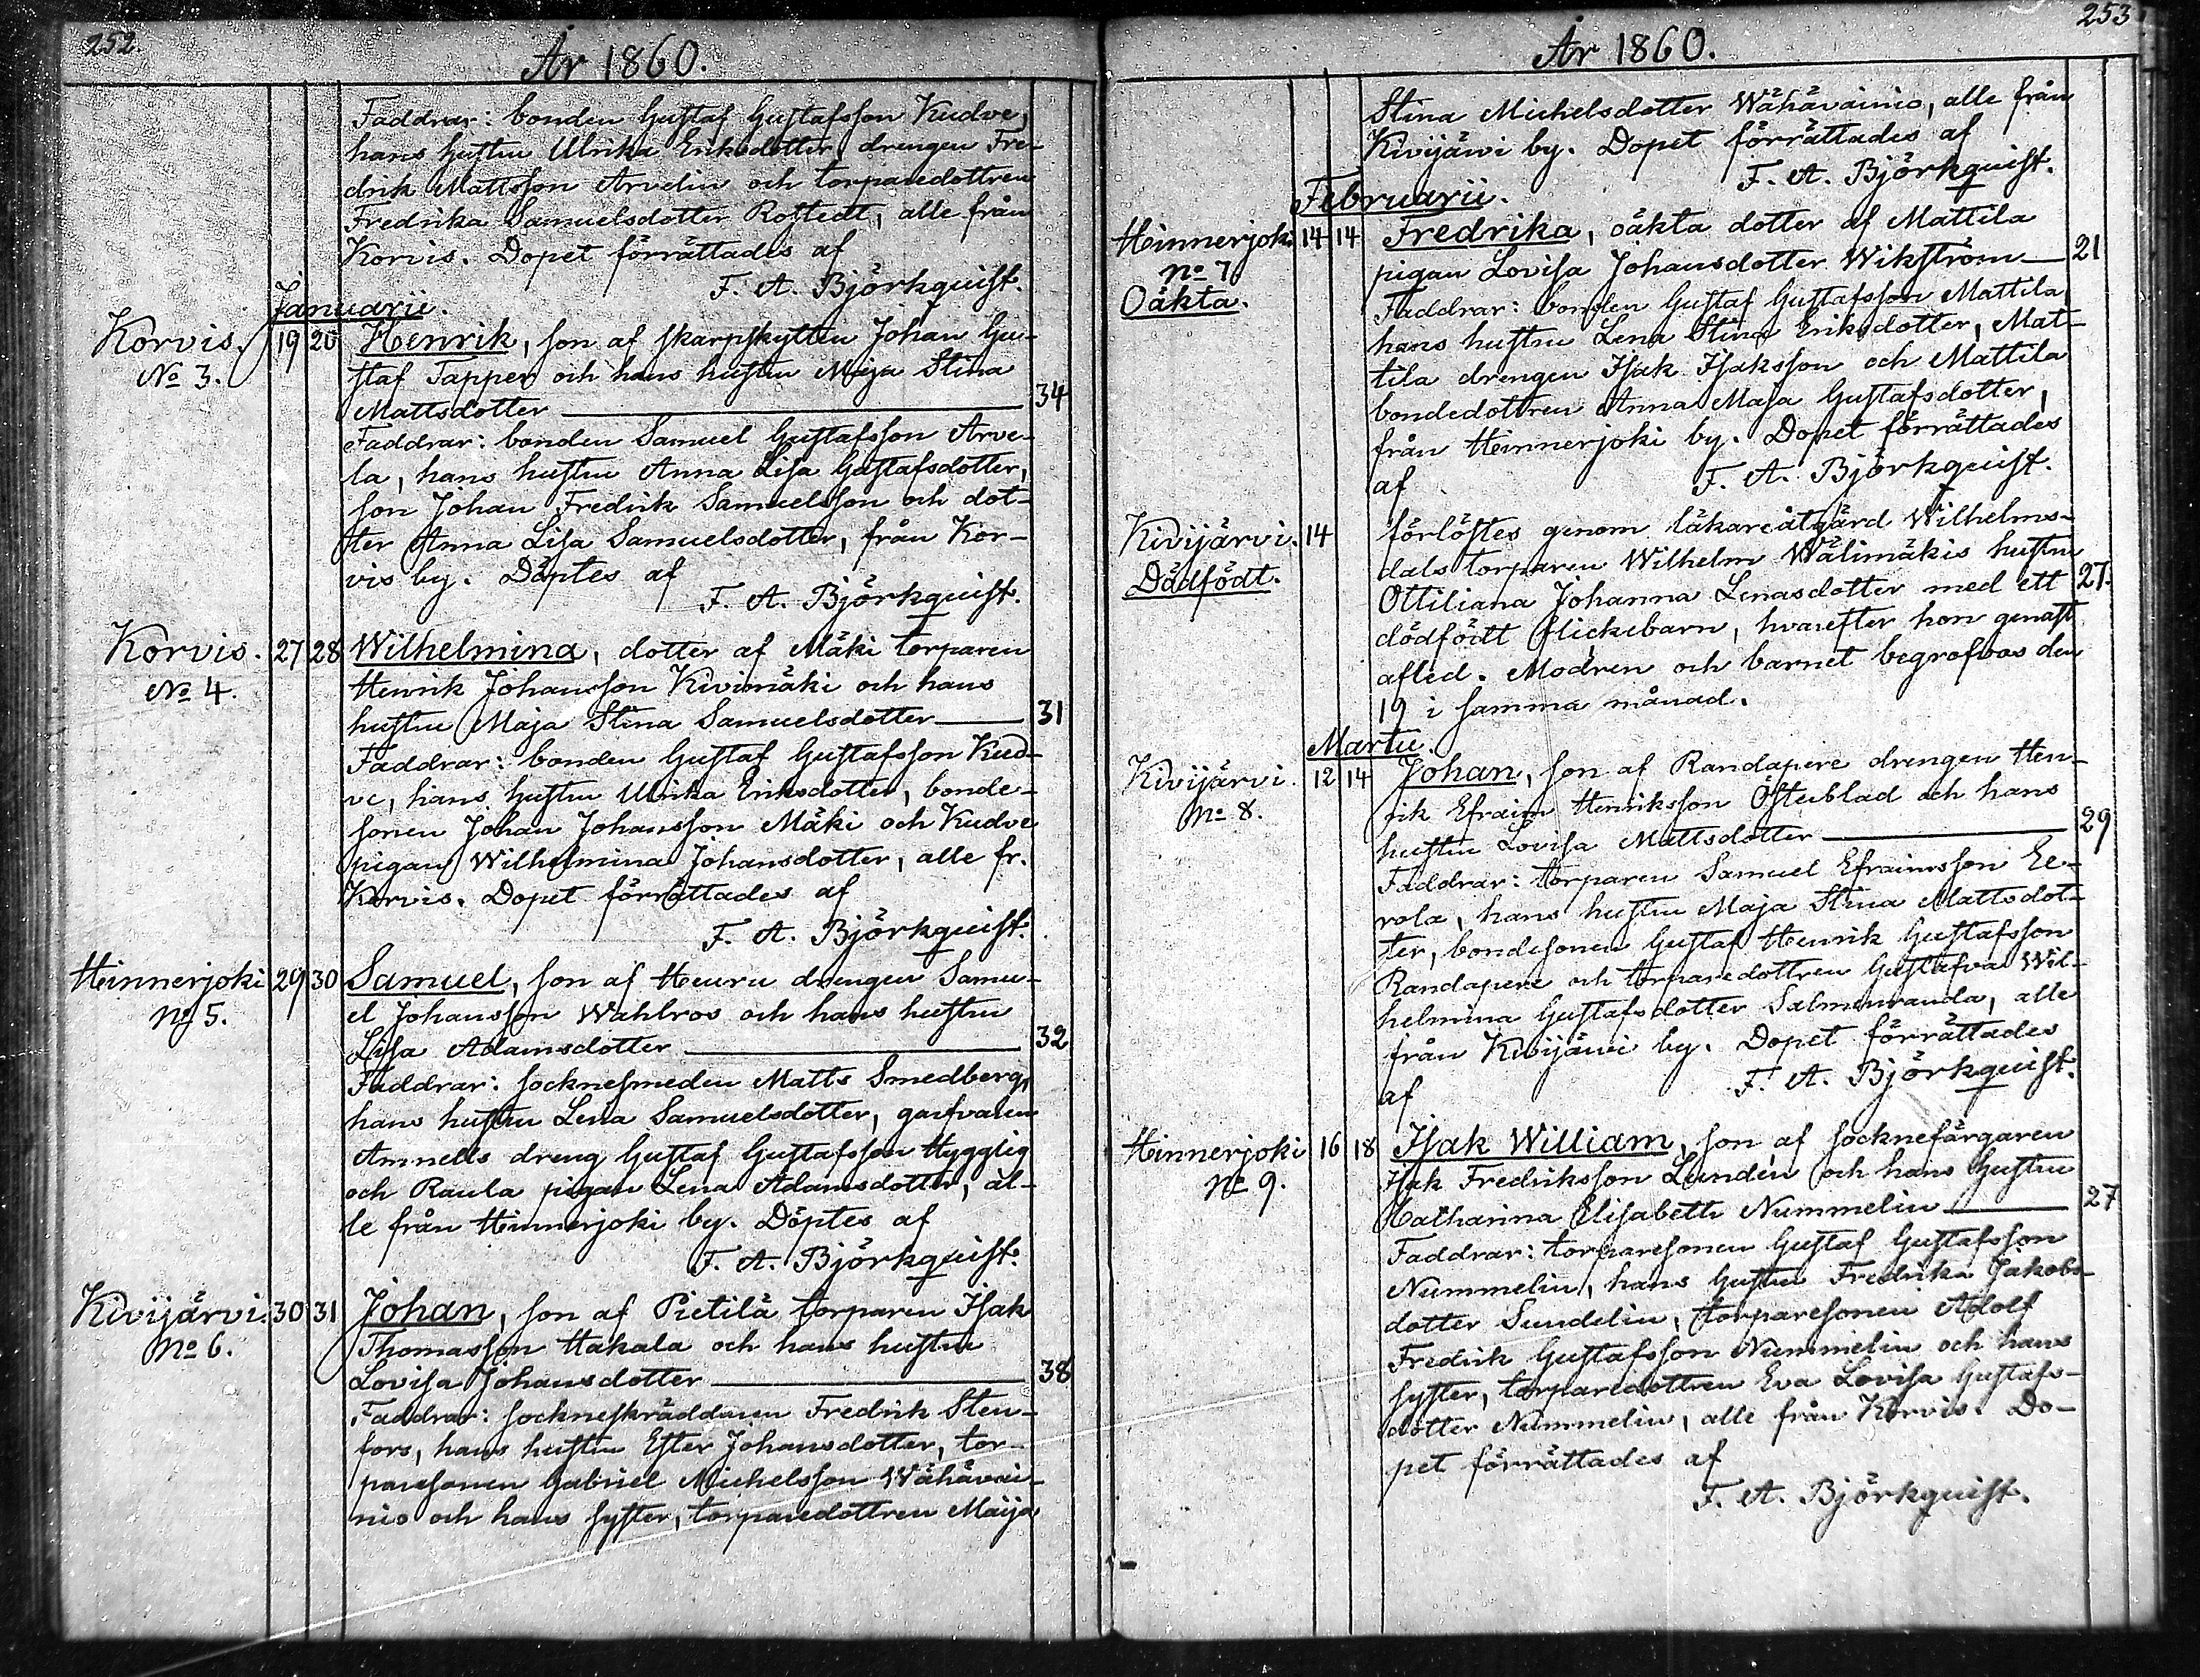 252.
År 1860.
Faddrar: bonden Gustaf Gustafsson Kudve,
hans hustru Ulrika Eriksdotter, drengen Fre-
drik Mattsson Arvelin och torparedottren
Fredrika Samuelsdotter Rostedt, alle från
Korvis. Dopet förrättades af
F. A. Björkquist.
Januarii.
Korvis. 19 20 Henrik, son af skarpskytten Johan Gu-
No 3. staf Tapper och hans hustru Maja Stina
Mattsdotter 34
Faddrar: bonden Samuel Gustafsson Arve-
la, hans hustru Anna Lisa Gustafsdotter,
son Johan Fredrik Samuelsson och dot-
ter Anna Lisa Samuelsdotter, från Kor-
vis by. Döptes af
F. A. Björkquist.
Korvis. 27 28 Wilhelmina, dotter af Mäki torparen
No 4. Henrik Johansson Kivimäki och hans
hustru Maja Stina Samuelsdotter 31
Faddrar: bonden Gustaf Gustafsson Kud-
ve, hans hustru Ulrika Eriksdotter, bonde-
sonen Johan Johansson Mäki och Kudve
pigan Wilhelmina Johansdotter, alle fr.
Korvis. Dopet förrättades af
F. A. Björkquist.
Hinnerjoki 29 30 Samuel, son af Heuru drengen Samu-
No 5. el Johansson Wahlros och hans hustru
Lisa Adamsdotter 32
Faddrar: socknesmeden Matts Smedberg,
hans hustru Lena Samuelsdotter, garfvaren
Amnells dreng Gustaf Gustafsson Hygglig
och Raula pigan Lena Adamsdotter, al-
le från Hinnerjoki by. Döptes af
F. A. Björkquist.
Kivijärvi. 30 31 Johan, son af Pietilä torparen Isak
No 6. Thomasson Hakala och hans hustru
Lovisa Johansdotter 38
Faddrar: sockneskräddaren Fredrik Sten-
fors, hans hustru Ester Johansdotter, tor-
paresonen Gabriel Michelsson Wähävai-
nio och hans syster, torparedottren Maija
253
År 1860.
Stina Michelsdotter Wähävainio, alle från
Kivijärvi by. Dopet förrättades af
F. A. Björkquist.
Februarii.
Hinnerjoki 14 14 Fredrika, oäkta dotter af Mattila
No 7. pigan Lovisa Johansdotter Wikström 21
Oäkta. Faddrar: bonden Gustaf Gustafsson Mattila,
hans hustru Lena Stina Eriksdotter, Mat-
tila drengen Isak Isaksson och Mattila
bondedottren Anna Maja Gustafsdotter,
från Hinnerjoki by. Dopet förrättades
af F. A. Björkquist.
Kivijärvi. 14 förlöstes genom läkareåtgärd Wilhelms-
Dödfödt. dals torparen Wilhelm Wälimäkis hustru
Ottiliana Johanna Lenasdotter med ett 27.
dödfödt flickebarn, hvarefter hon genast
afled. Modren och barnet begrofvos den
19 i samma månad.
Martii.
Kivijärvi. 12 14 Johan, son af Randapere drengen Hen-
No 8. rik Efraim Henriksson Österblad och hans
hustru Lovisa Mattsdotter 29
Faddrar: torparen Samuel Efraimsson Ee-
rola, hans hustru Maja Stina Mattsdot-
ter, bondesonen Gustaf Henrik Gustafsson
Randapere och torparedottren Gustafva Wil-
helmina Gustafsdotter Salmenranda, alle
från Kivijärvi by. Dopet förrättades
af F. A. Björkquist.
Hinnerjoki 16 18 Isak William, son af socknefärgaren
No 9. Isak Fredriksson Lundén och hans hustru
Catharina Elisabeth Nummelin 27
Faddrar: torparesonen Gustaf Gustafsson
Nummelin, hans hustru Fredrika Jakobs-
dotter Sundelin, torparesonen Adolf
Fredrik Gustafsson Nummelin och hans
syster, torparedottren Eva Lovisa Gustafs-
dotter Nummelin, alle från Korvis. Do-
pet förrättades af
F. A. Björkquist.